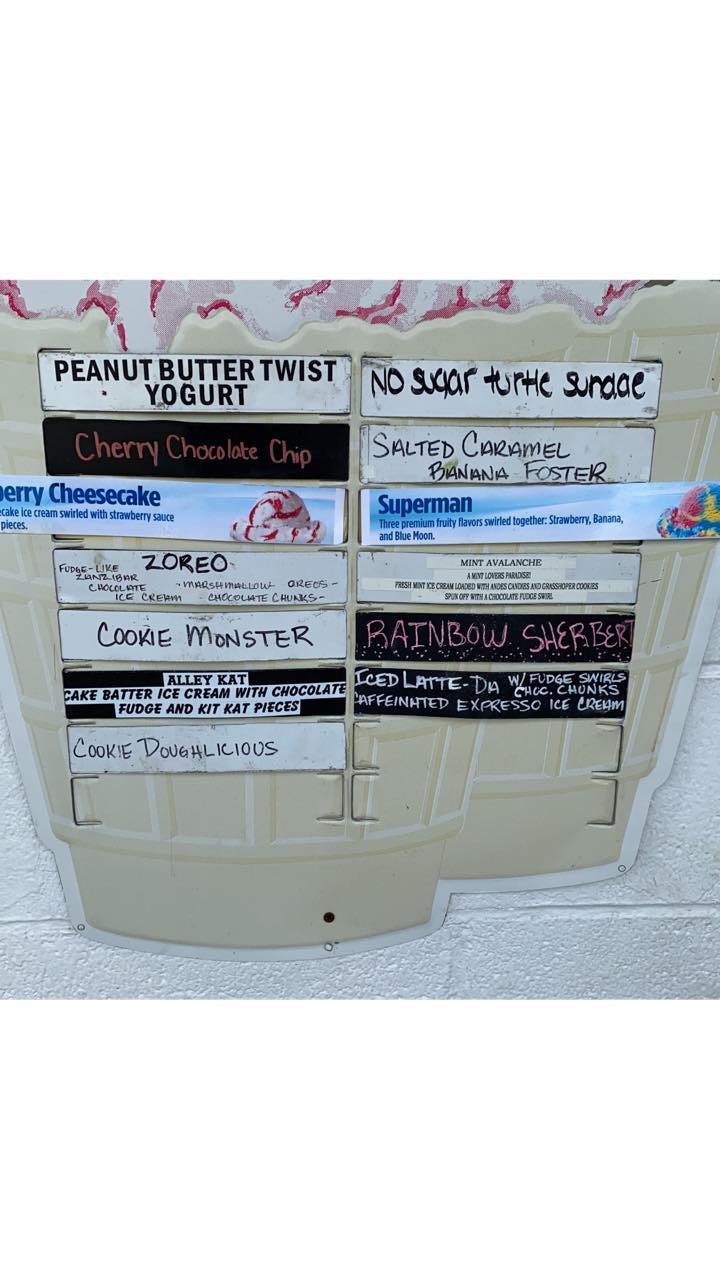 PEANUT BUTTER TWIST
YOGURT
NO sugar turtle sundae
Cherry Chocolate Chip
SALTED CARAMEL
BANANA FOSTER
erry Cheesecake
cake ice cream swirled with strawberry sauce
pieces.
Superman
Three premium fruity flavors swirled together: Strawberry, Banana,
and Blue Moon.
ZOREO
FUDGE-LIKE
ZANZIBAR
CHOCOLATE
ICE CREAM
-MARSHMALLOW OREOS-
CHOCOLATE CHUNKS-
MINT AVALANCHE
A MINT LOVERS PARADISE!
FRESH MINT ICE CREAM LOADED WITH ANDES CANDIES AND GRASSHOPER COOKIES
SPUN OFF WITH A CHOCOLATE FUDGE SWIRL
COOKIE MONSTER
RAINBOW SHERBERT
ALLEY KAT
CAKE BATTER ICE CREAM WITH CHOCOLATE
FUDGE AND KIT KAT PIECES
ICED LATTE-DA W/ FUDGE SWIRLS
CHOC. CHUNKS
CAFFEINATED EXPRESSO ICE CREAM
COOKIE DOUGHLICIOUS